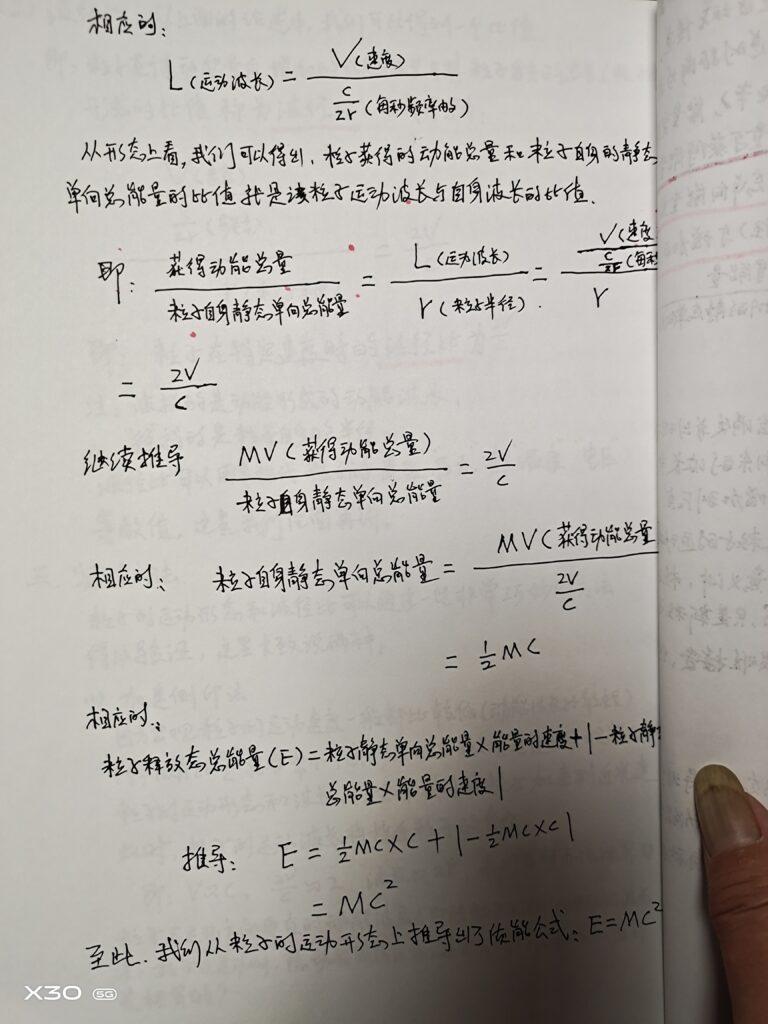 相应的:
L(运动波长) = V(速度) / C/2r (每秒频率的)
从形态上看,我们可以得出,粒子获得的动能总量和粒子自身的静态
单向总能量的比值就是该粒子运动波长与自身波长的比值.
即: 获得动能总量 / 粒子自身静态单向总能量 = L(运动波长) / r(粒子半径). = V(速度 / C/2r (每秒 / r
= 2V / C
继续推导 MV(获得动能总量) / 粒子自身静态单向总能量 = 2V / C
相应的: 粒子自身静态单向总能量 = MV(获得动能总量 / 2V/C
= ½MC
相应的:
粒子释放态总能量(E)=粒子静态单向总能量×能量的速度+|-粒子静
总能量×能量的速度|
推导: E = ½MC×C + |-½MC×C|
= MC²
至此,我们从粒子的运动形态上推导出了质能公式: E=MC²
X30 5G